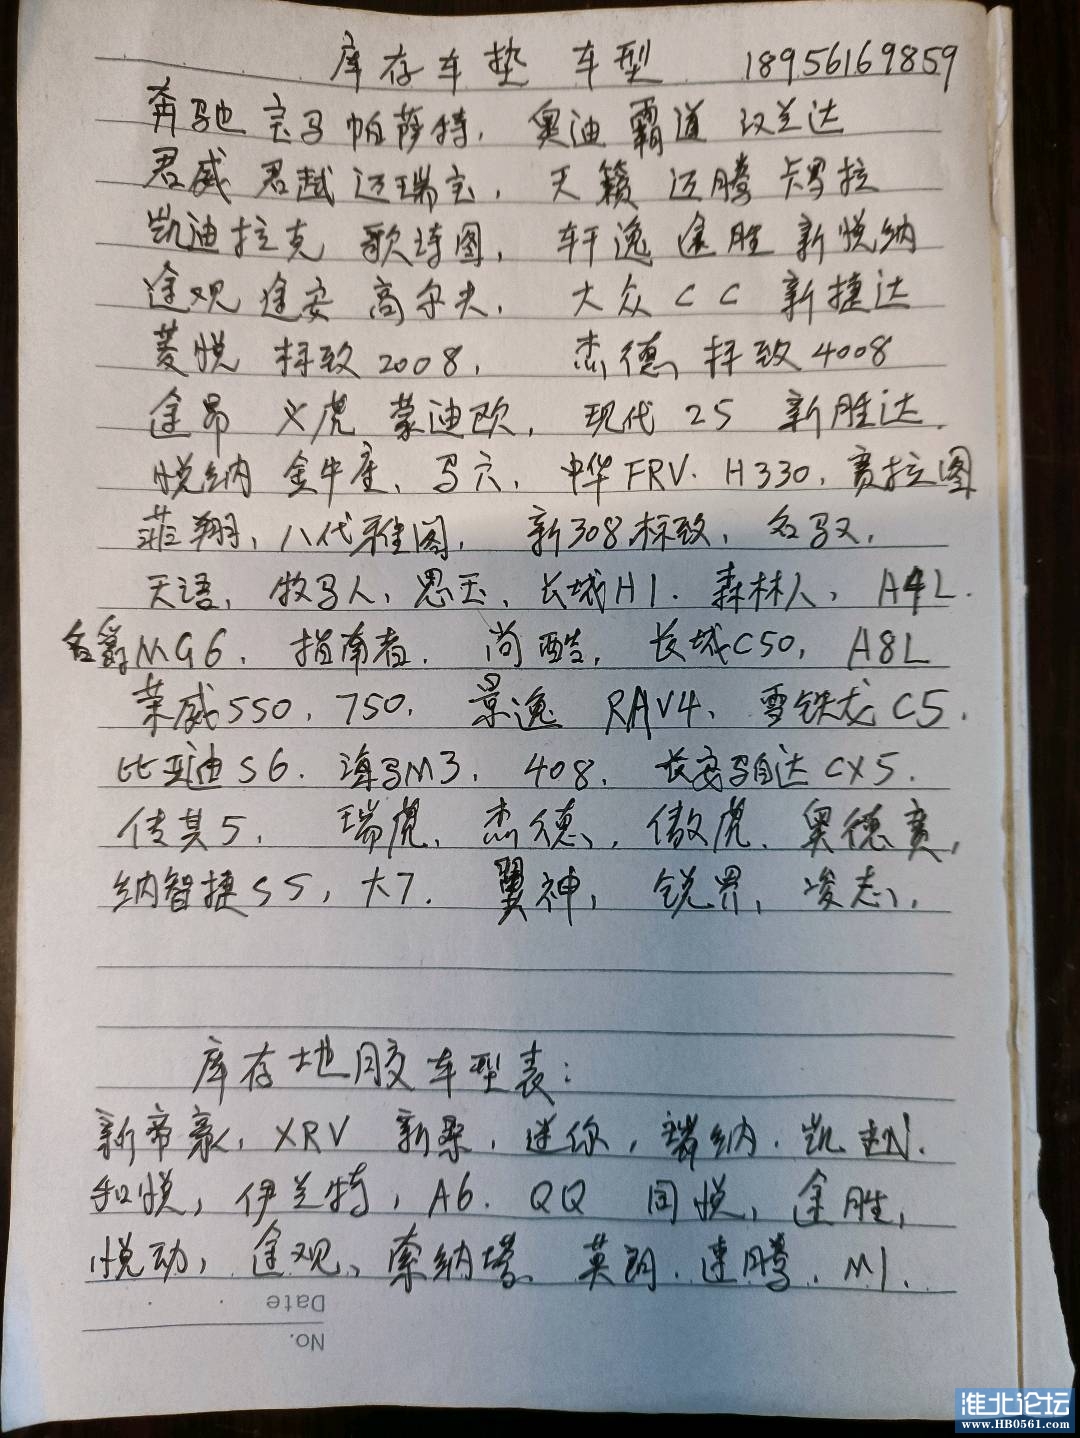 库存车垫 车型 18956169859
奔驰 宝马 帕萨特, 奥迪 霸道 汉兰达
君威 君越 迈瑞宝, 天籁 迈腾 卡罗拉
凯迪拉克 歌诗图, 轩逸 途胜 新悦纳
途观 途安 高尔夫, 大众CC 新捷达
菱悦 标致2008, 杰德, 标致4008
途昂 义虎 蒙迪欧, 现代25 新胜达.
悦纳 金牛座、马六, 中华FRV. H330, 赛拉图
菲翔, 八代雅阁, 新308标致, 名驭,
天语, 牧马人, 思玉, 长城H1. 森林人, A4L.
名爵MG6, 指南者. 尚酷, 长城C50, A8L
荣威550, 750. 景逸 RAV4、雪铁龙C5.
比亚迪S6. 海马M3, 408, 长安马自达CX5.
传其5, 瑞虎, 杰德, 傲虎, 奥德赛,
纳智捷S5, 大7. 翼神, 锐界, 峻志,
库存地胶车型表:
新帝豪, XRV 新桑, 迷你, 瑞纳. 凯越N.
和悦, 伊兰特, A6. QQ 同悦, 途胜,
悦动, 途观、索纳塔、英朗. 速腾, M1.
Date
No.
淮北论坛
www.HB0561.com